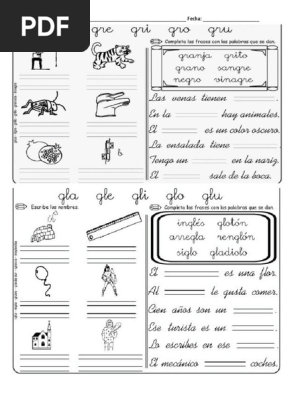 PDF
Fecha:
gre gri gro gru
Completa las frases con las palabras que se dan.
granja grito
grano sangre
negro vinagre
Las venas tienen
En la hay animales.
El es un color oscuro.
La ensalada tiene
Tengo un en la nariz.
El sale de la boca.
gla gle gli glo glu
Escribe los nombres.
Completa las frases con las palabras que se dan.
inglés glotón
arregla renglón
siglo gladiolo
El es una flor.
Al le gusta comer.
Cien años son un .
Ese turista es un .
Lo escribes en ese .
El mecánico coches.